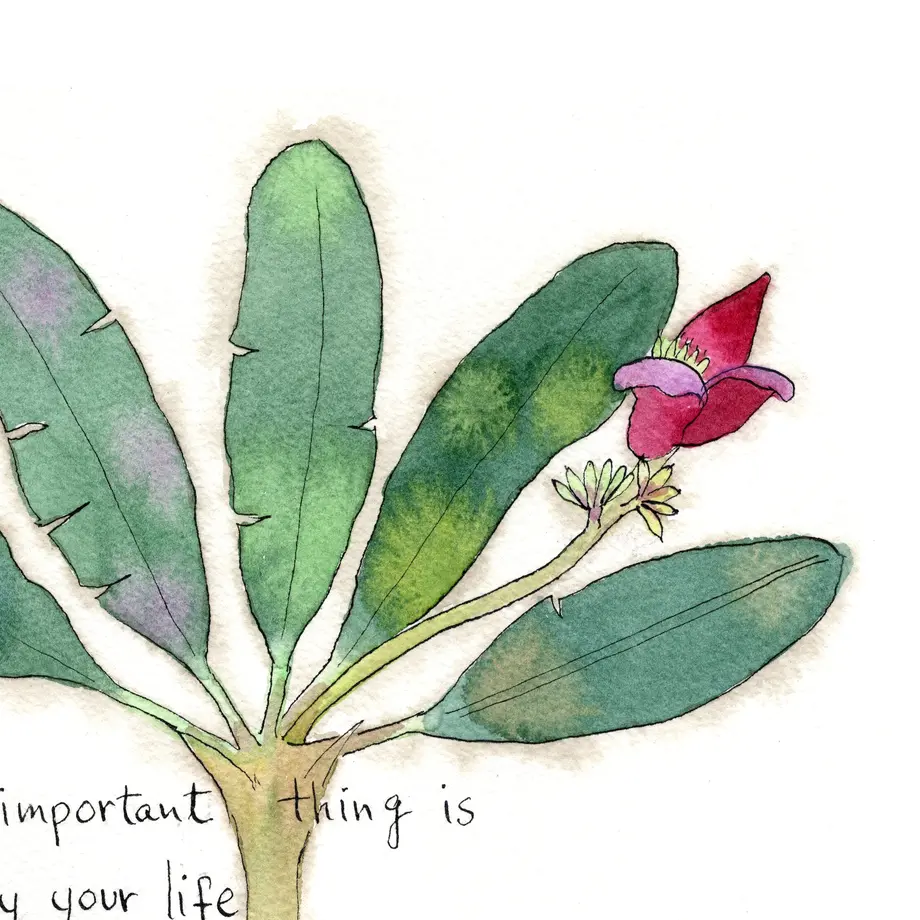 important thing is
y your life